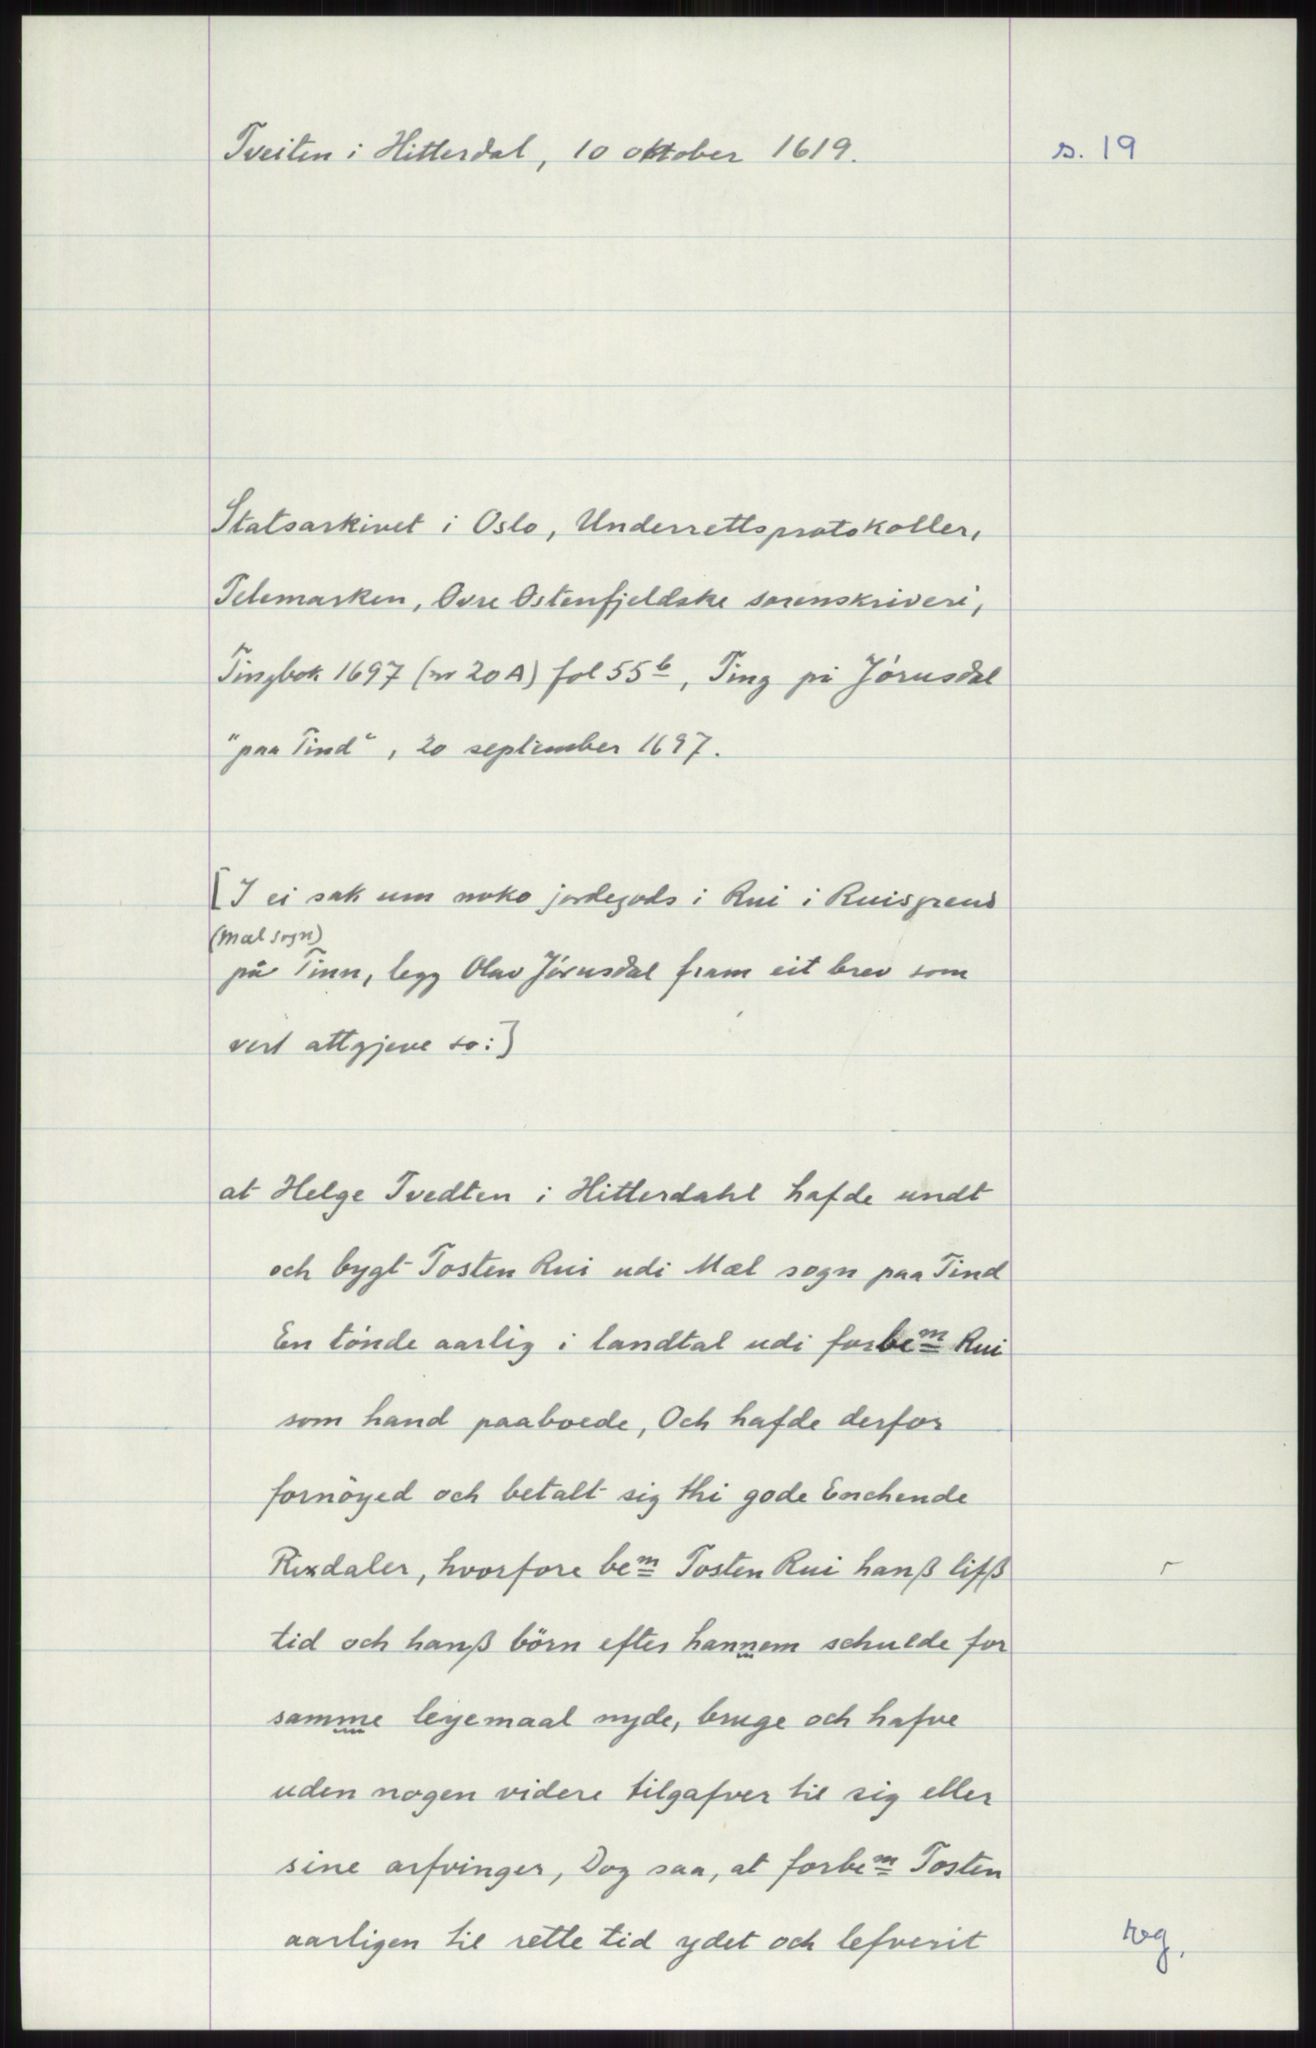 Tveiten i Hitterdal, 10 oktober 1619.
s. 19
Statsarkivet i Oslo, Underrettsprotokoller,
Telemarken, Øvre Østenfjeldske sorenskriveri,
Tingbok 1697 (nr 20A) fol 55b, Ting på Jórusdal
"paa Tind", 20 september 1697.
[I ei sak um noko jordegods i Rui i Ruisgrend
(Mæl sogn)
på Tinn, legg Olav Jórusdal fram eit brev som
vert attgjeve so:]
at Helge Tvedten i Hitterdahl hafde undt
och bygt Tosten Rui udi Mæl sogn paa Tind
En tónde aarlig i landtal udi forbem Rui
som hand paaboede, Och hafde derfor
fornöyed och betalt sig thi gode Enchende
Rixdaler, hvorfore bem Tosten Rui hanß lifß
tid och hanß börn efter hannem schulde for
samme leyemaal nyde, bruge och hafve
uden nogen videre tilgafver til sig eller
sine arfvinger, Dog saa, at forbem Tosten
aarligen til rette tid ydet och lefverit
reg.